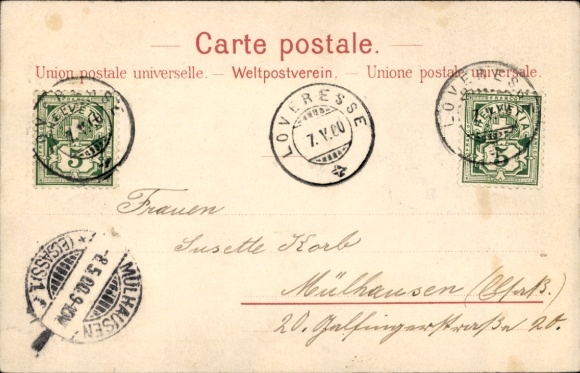 Carte postale.
Union postale universelle. — Weltpostverein. — Unione postale universale.
LOVERESSE
HELVETIA
5
LOVERESSE
7.V.00
LOVERESSE
FRANCO
HELVETIA
5
Frauen
Susette Korb
Mülhausen (Elsaß.)
20. Galfingerstraße 20.
MÜLHAUSEN
-8.5.00.9-10V.
* (ELSASS) 1 *